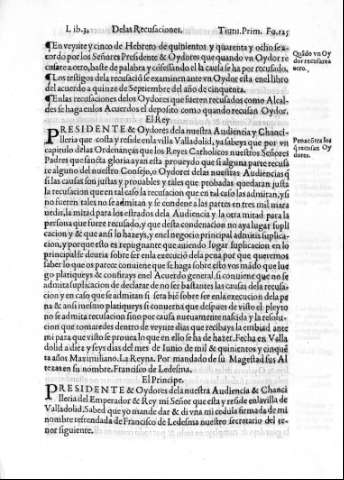 Lib.3. De las Recusaciones. Titu. Prim. Fo. 125
¶ En veynte y cinco de Hebrero de quinientos y quarenta y ocho se a
cordo por los Señores Presidente & Oydores que quando vn Oydor re
cusare a otro, baste de palabra y cõfessandolo el la causa se ha por recusado.
Quãdo vn Oy
dor recusare a
otro.
¶ Los testigos dela recusaciõ se examinen ante vn Oydor esta en el libro
del acuerdo a quinze de Septiembre del año de cinquenta.
¶ En las recusaciones delos Oydores que fueren recusados como Alcal-
des se haga en los Acuerdos el deposito como quando recusan Oydor.
El Rey
PRESIDENTE & Oydores dela nuestra Audiencia y Chanci-
lleria que esta y reside en la villa Valladolid, ya sabeys que por vn
capitulo delas Ordenanças que los Reyes Catholicos nuestros Señores
Padres que sancta gloria ayan esta proueydo que si alguna parte recusa
re alguno del nuestro Consejo, o Oydores delas nuestras Audiencias q̃
si las causas son justas y prouables y tales que probadas quedaran justa
la recusacion que en tal caso la recusacion que en tal caso las admitan, y si
no fueren tales no se admitan y se condene a las partes en tres mil mara
uedis, la mitad para los estrados dela Audiencia y la otra mitad para la
persona que fuere recusado, y que desta condenacion no aya lugar supli
cacion y & que ansi lo hazeys, y en el negocio principal admitis suplica-
cion, y porque esto es repugnante que auiendo lugar suplicacion en lo
principal se deuria sobre ser en la execuciõ dela pena por que queremos
saber lo que os parece conuiene que se haga sobre esto vos mãdo que lue
go platiqueys & confirays en el Acuerdo general si conuiene que no se
admita suplicacion de declarar de no ser bastantes las causas dela recusa-
cion y en caso que se admitan si sera biẽ sobre ser en la execucion dela pe
na & ansi mesmo platiqueys si conuerna que despues de visto el pleyto
no se admita recusacion sino por causa nueuamente nascida y la resolu-
cion que tomaredes dentro de veynte dias que recibays la embiad ante
mi para que visto se prouea lo que en ello se ha de hazer. Fecha en Valla
dolid a diez y seys dias del mes de Iunio de mil & quinientos y cinquẽ
ta años Maximiliano. La Reyna. Por mandado de su Magestad sus Al
tezas en su nombre. Francisco de Ledesma.
El Principe.
PRESIDENTE & Oydores dela nuestra Audiencia & Chanci
lleria del Emperador & Rey mi Señor que esta y reside en la villa de
Valladolid. Sabed que yo mande dar & di vna mi cedula firmada de mi
nombre refrendada de Francisco de Ledesma nuestro secretario del te-
nor siguiente.